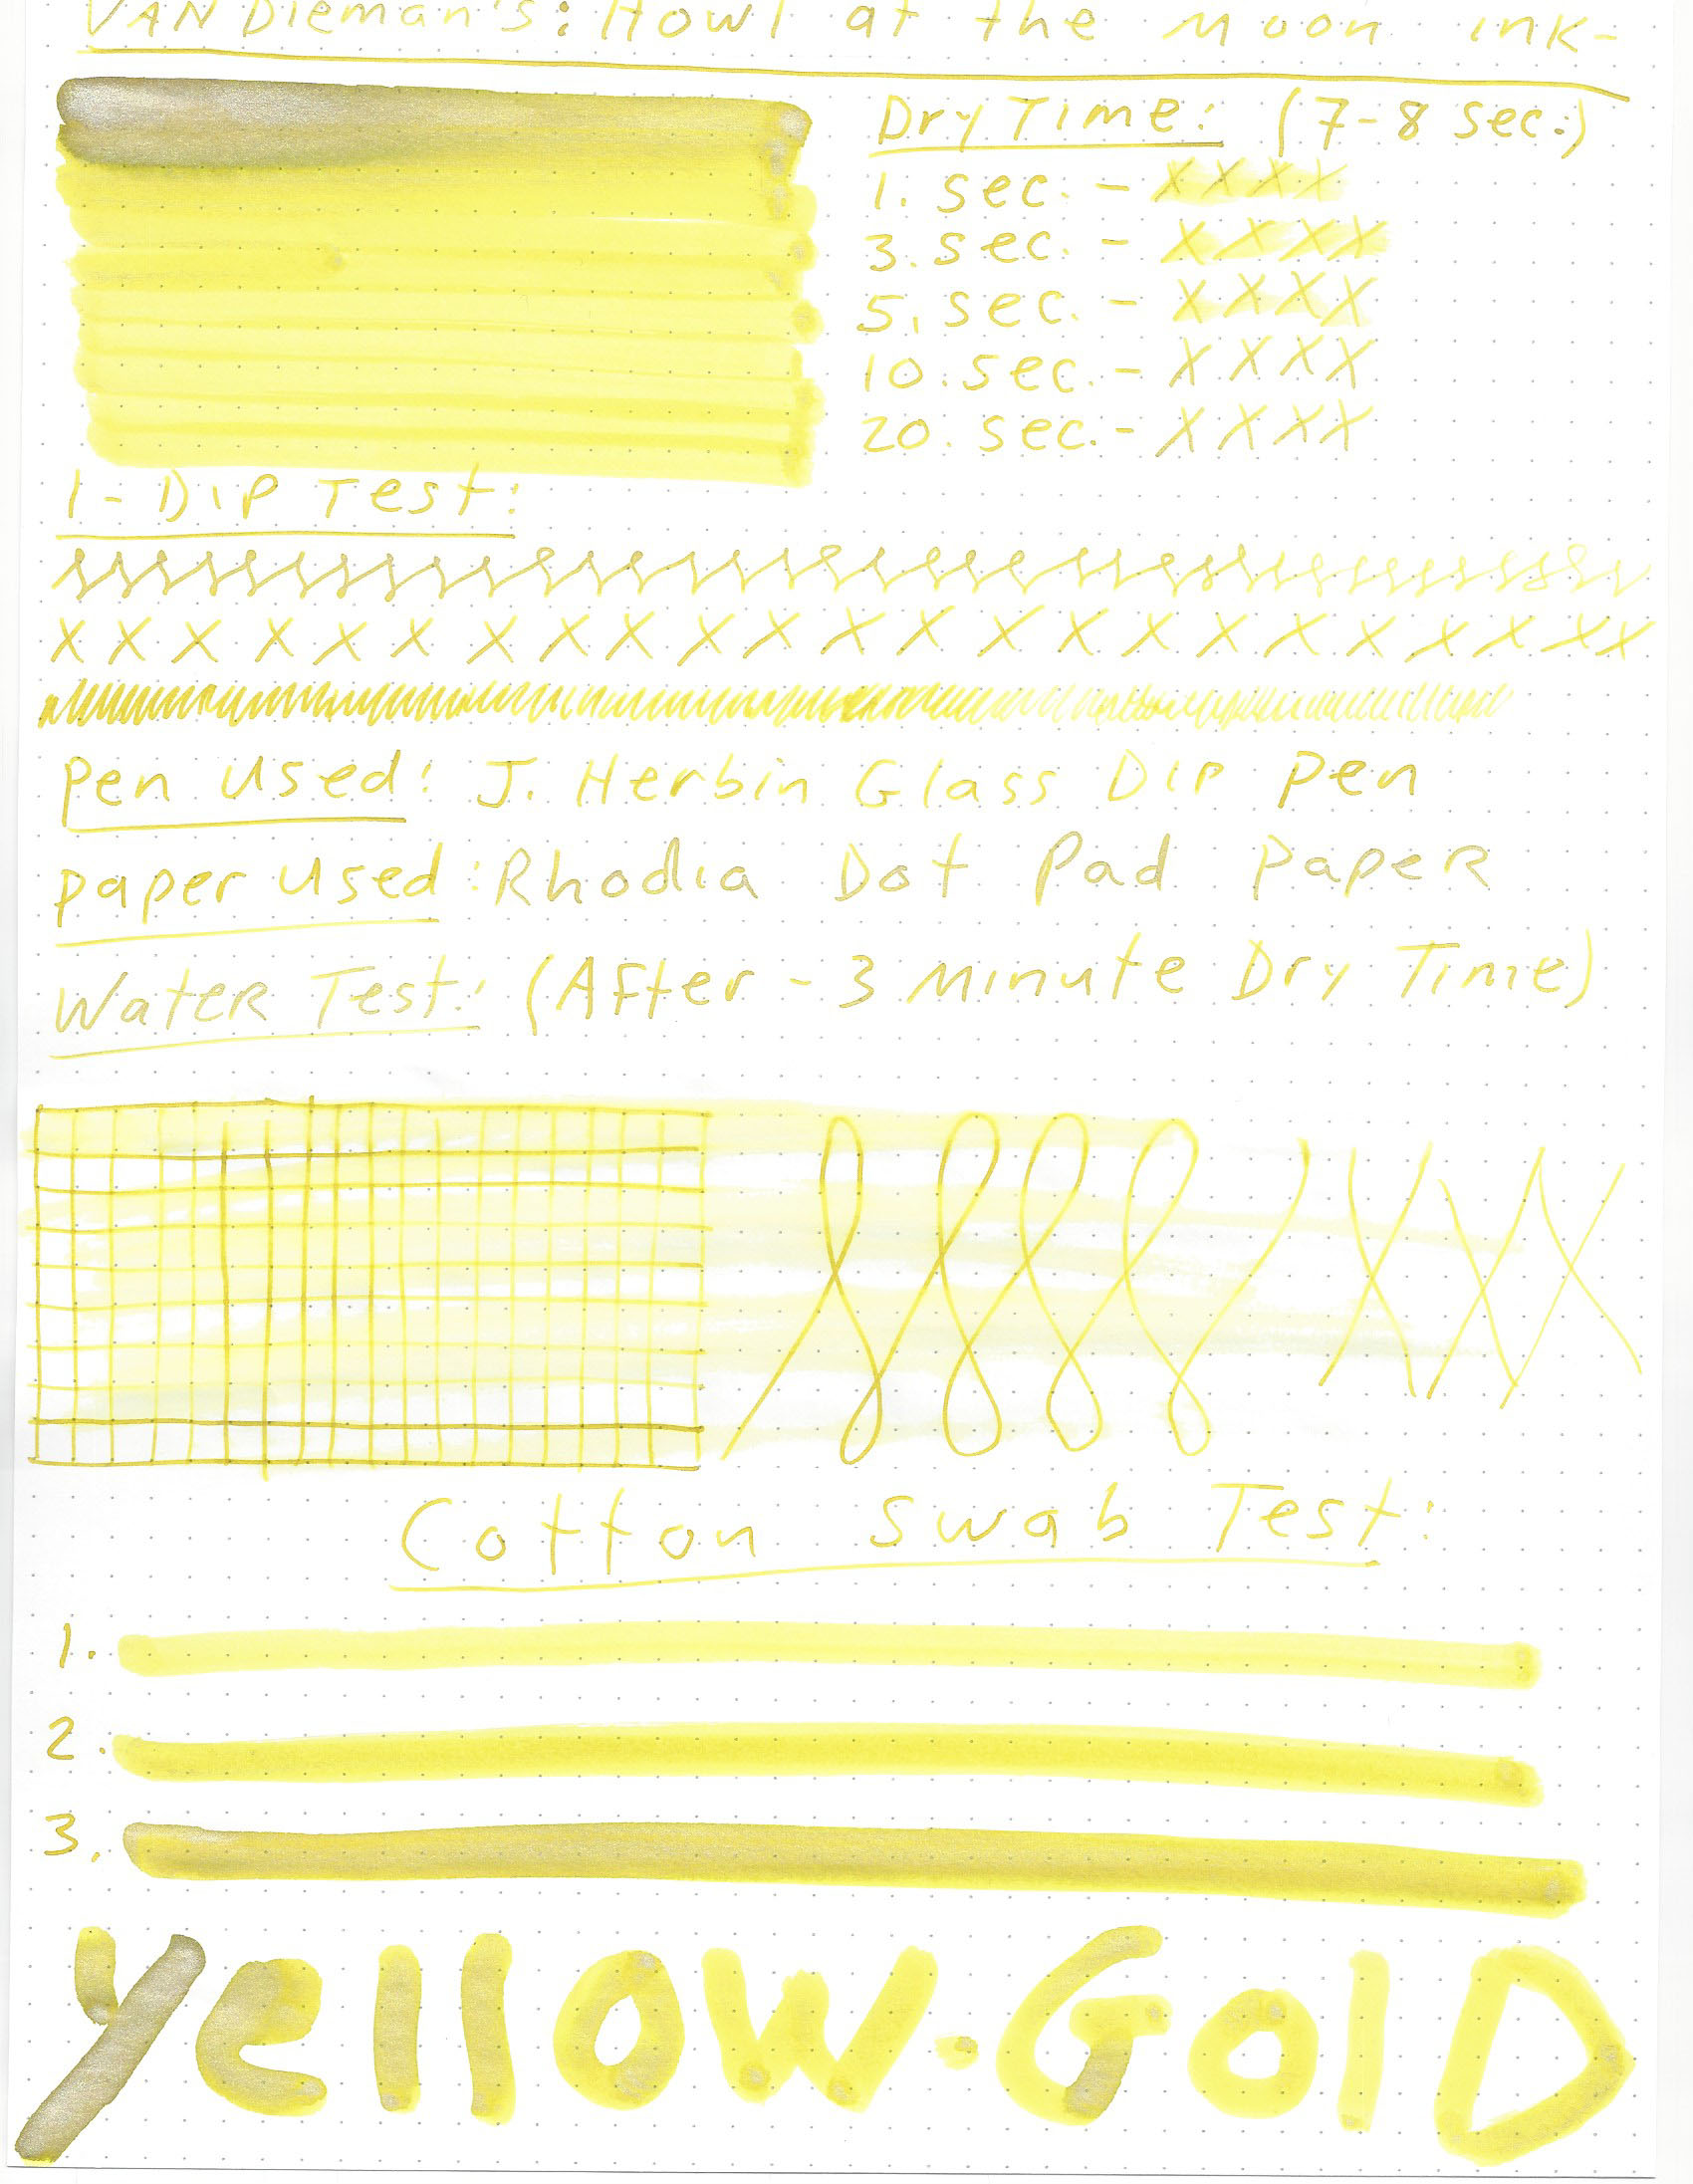 VAN Dieman's: Howl at the Moon ink-
Dry Time: (7-8 sec.)
1. sec. - x x x x
3. sec. - x x x x
5. sec. - x x x x
10. sec. - x x x x
20. sec. - x x x x
1- Dip Test:
x x x x x x x x x x x x x x x x x x x x x x x
Pen Used: J. Herbin Glass Dip Pen
Paper Used: Rhodia Dot Pad Paper
Water Test: (After - 3 Minute Dry Time)
Cotton Swab Test:
1.
2.
3.
Yellow-Gold